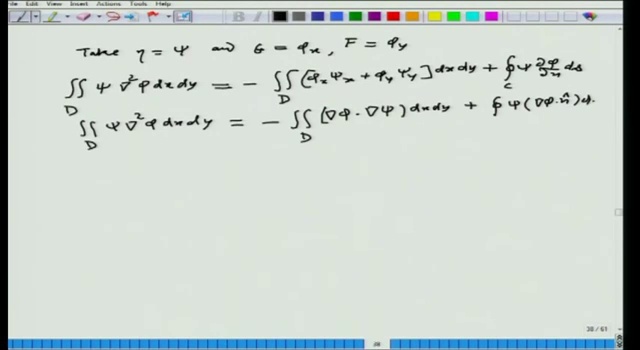 File Edit View Insert Actions Tools Help
Take η = ψ and G = φₓ, F = φ_y
∬_D ψ ∇²φ dx dy = − ∬_D [φₓ ψₓ + φ_y ψ_y] dx dy + ∮_C ψ ∂φ/∂n ds
∬_D ψ ∇²φ dx dy = − ∬_D (∇φ · ∇ψ) dx dy + ∮ ψ (∇φ · n̂) ds.
38 / 61
38